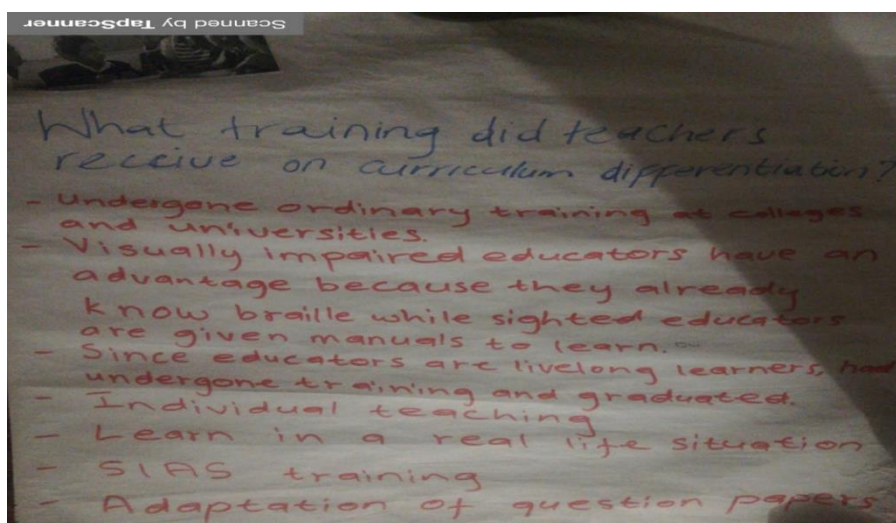 Scanned by TapScanner
What training did teacher's
receive on curriculum differentiation?
- Undergone ordinary training at colleges
and universities.
- Visually impaired educators have an
advantage because they already
know braille while sighted educators
are given manuals to learn.
- Since educators are livelong learners, had
undergone training and graduated.
- Individual teaching
- Learn in a real life situation
- SIAS training
- Adaptation of question papers